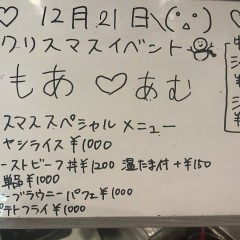 ♡ 12月21日\(・̑・) ♡
クリスマスイベント
もあ♡あむ
スマススペシャルメニュー
ヤシライス ¥1000
ーストビーフ丼¥1200 温たま付+¥150
単品¥1000
ーブラウニーパフェ¥1000
ポテトフライ¥1000